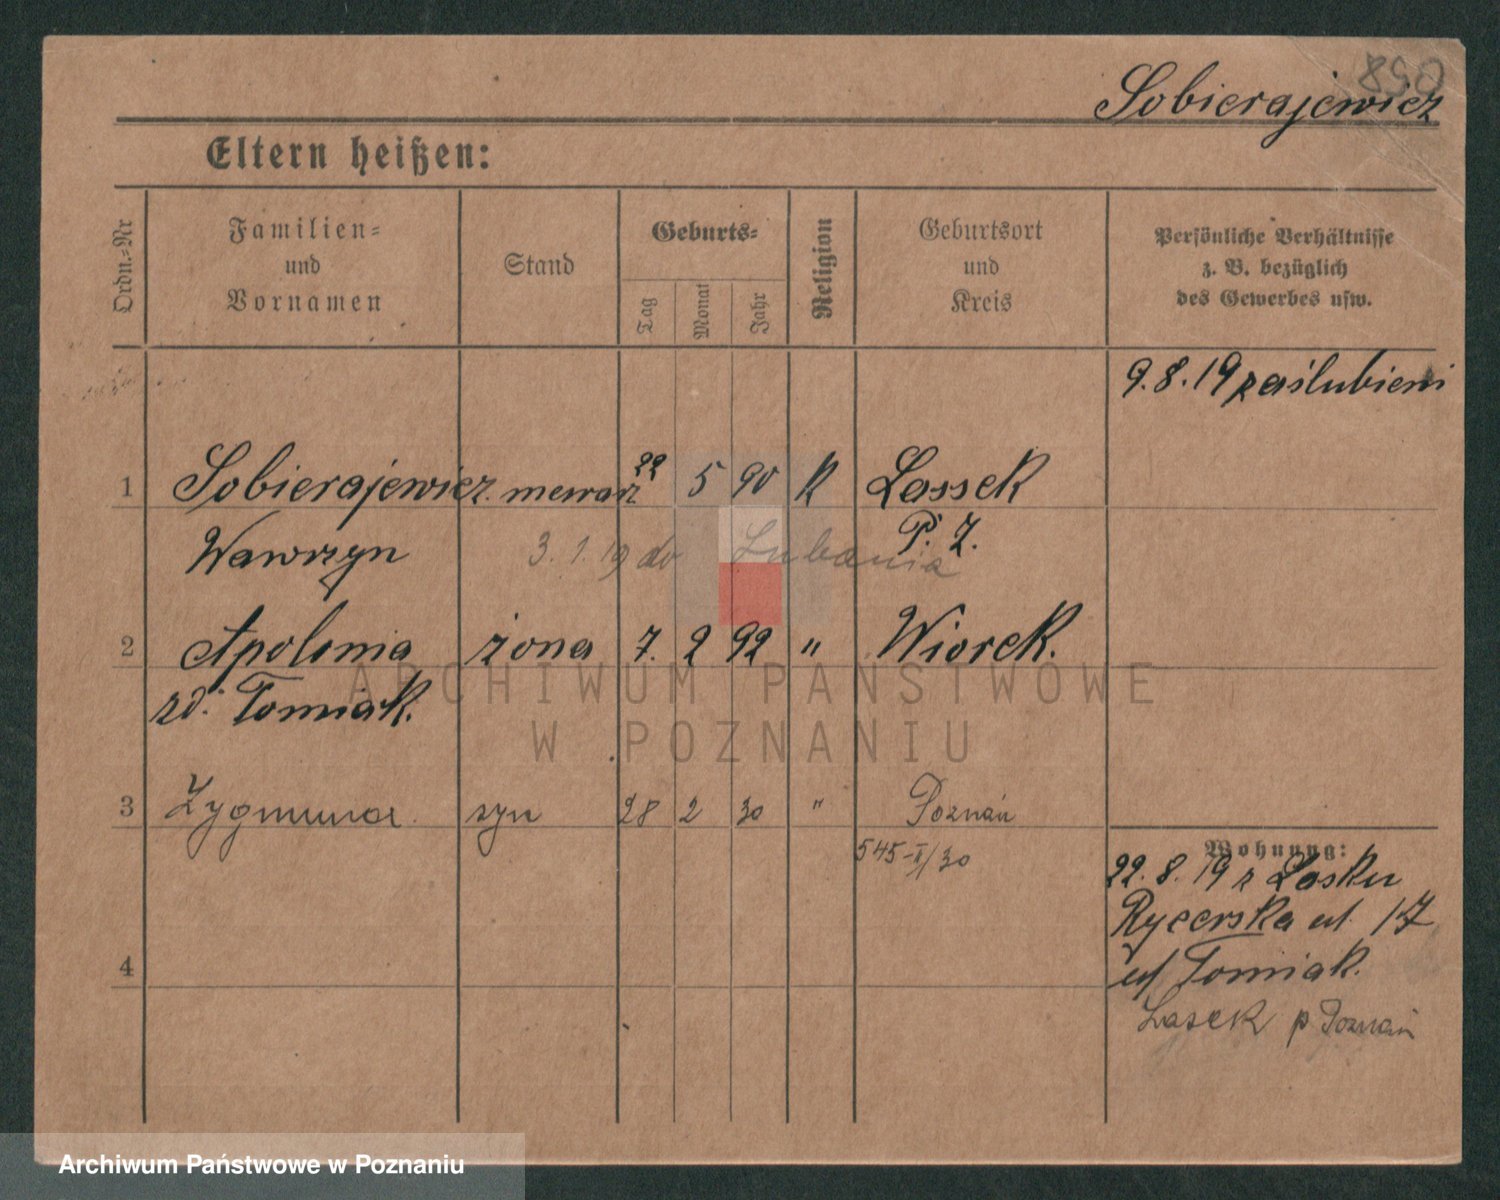 058
Sobierajewicz
Eltern heißen:
Ordn.-Nr
Familien-
und
Vornamen
Stand
Geburts-
Tag
Monat
Jahr
Religion
Geburtsort
und
Kreis
Persönliche Verhältnisse
z. B. bezüglich
des Gewerbes usw.
9.8.19 zaślubieni
1 Sobierajewicz 22 5 90 K Lassek
Wawrzyn P. Z.
3.1.19 do Lubania
2 Apolonia żona 7. 2 92 " Wiorek.
rd. Tomiak.
3 Zygmunt syn 28 2 30 " Poznań
545-II/30
4
Wohnung:
22.8.19 z Lasku
Rycerska ul. 17
u/ Tomiak.
Lasek p Poznań
ARCHIWUM PAŃSTWOWE
W POZNANIU
Archiwum Państwowe w Poznaniu